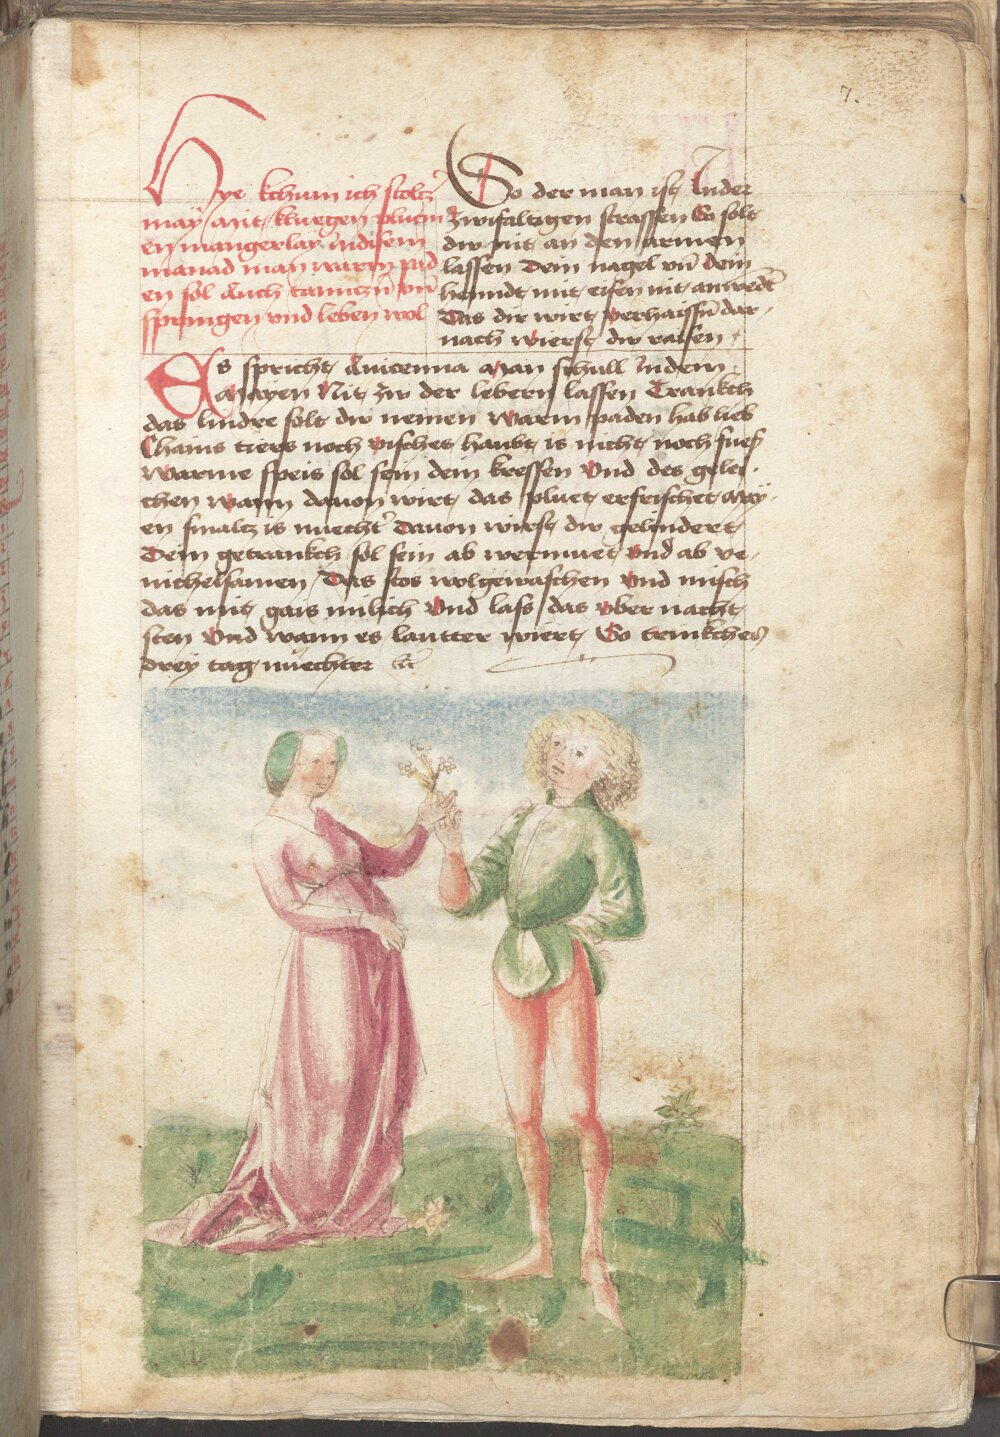 7.
Hye kchum ich stolcz
may mit kluegen pluem
en mangerlay Indisem
manad man warm pad
en sol Auch tanczn̄ vn̄
springen vnd leben wol
So der man ist In der
zwifaltigen strassen So solt
dw nit an den armen
lassen Dein nagel vn̄ dein
henndt mit eisen nit anwedt
Das dir wirt verhaissn̄ dar
nach wierst dw raisen
Es spricht Auicenna Man schull In dem
Mayen Nit zw der lebern lassen Tranckh
das lindre solt dw nemen Warm paden hab lieb
Chains tiers noch visches haubt is nicht noch sues
Warme speis sol sein dein kressen Vnd des gelei
chen Wann dauon wirt das pluet erfrischet May
en smalcz is nuecht Dauon wirst dw gelindert
Dein getranckh sol sein ab wermuet Vnd ab ve
nichelsamen Das stos wolgewaschen Vnd misch
das mit gais milich Vnd lass das vber nacht
sten Vnd Wann es lautter wiert So trinckh es
drey tag nuechter etc